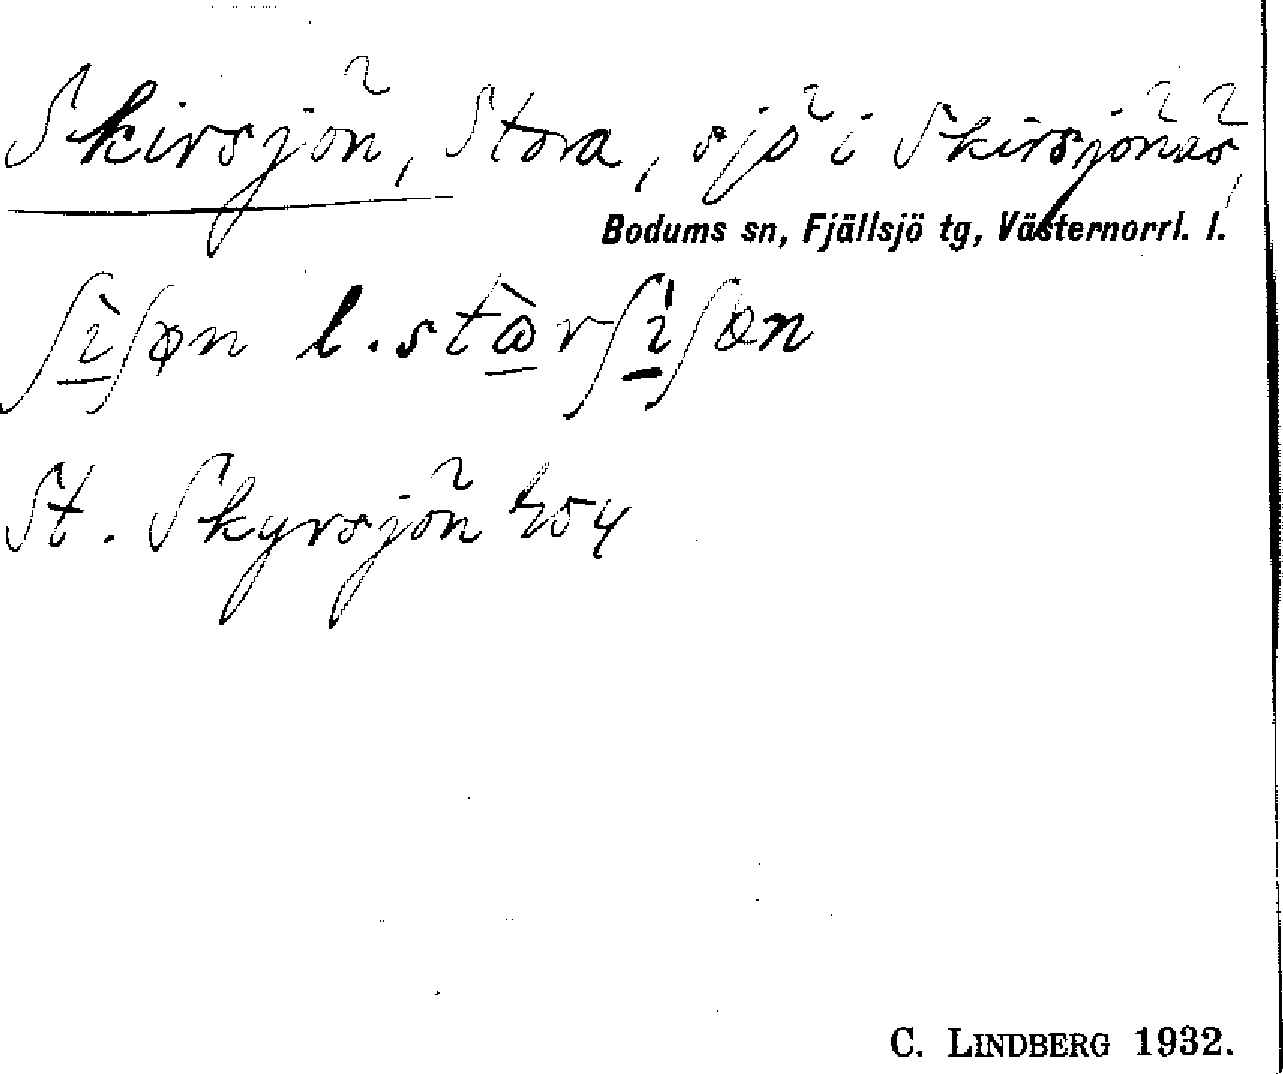 Skirsjön, Stora, sjö i Skirsjönäs,
Bodums sn, Fjällsjö tg, Västernorrl. l.
ʃìʃøn l. stàrʃìʃøn
St. Skyrsjön
C. LINDBERG 1932.